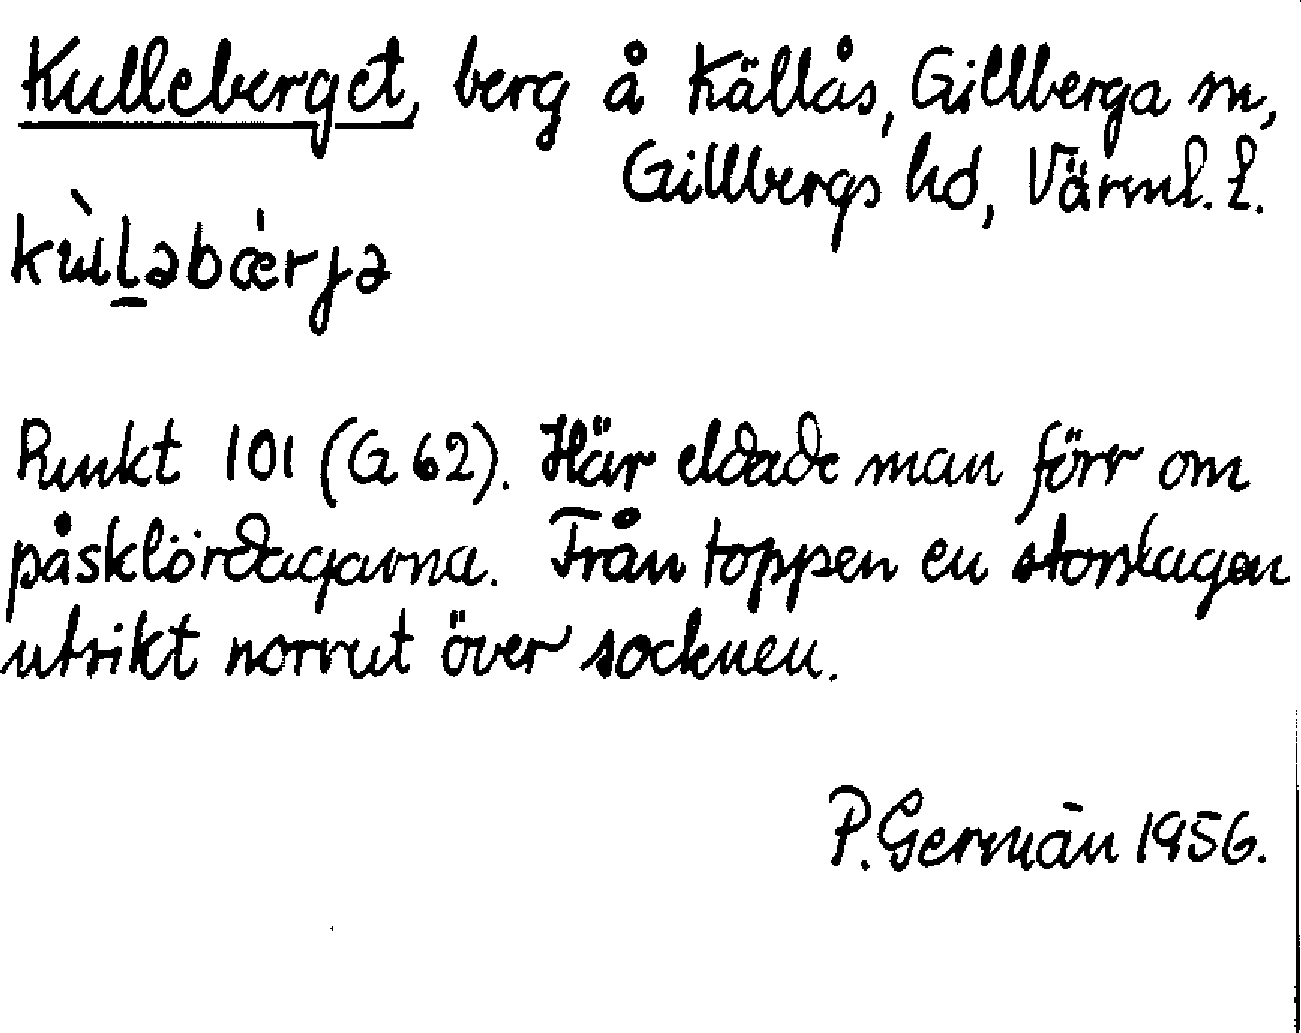 Kulleberget, berg å Källås, Gillberga sn,
Gillbergs hd, Värml. l.
kùl̠əbœ̀rjə
Punkt 101 (G 62). Här eldade man förr om
påsklördagarna. Från toppen en storslagen
utsikt norrut över socknen.
P. Germān 1956.